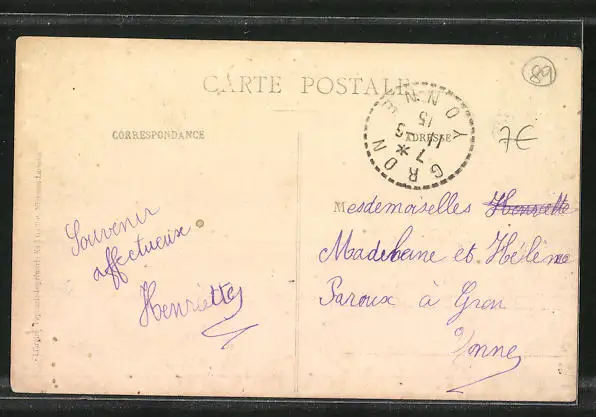 CARTE POSTALE
89
GRON
YONNE
7 * 11-5
15
7€
CORRESPONDANCE
ADRESSE
Souvenir
affectueux
Henriette
Mesdemoiselles Henriette
Madeleine et Hélène
Paroux à Gron
Yonne